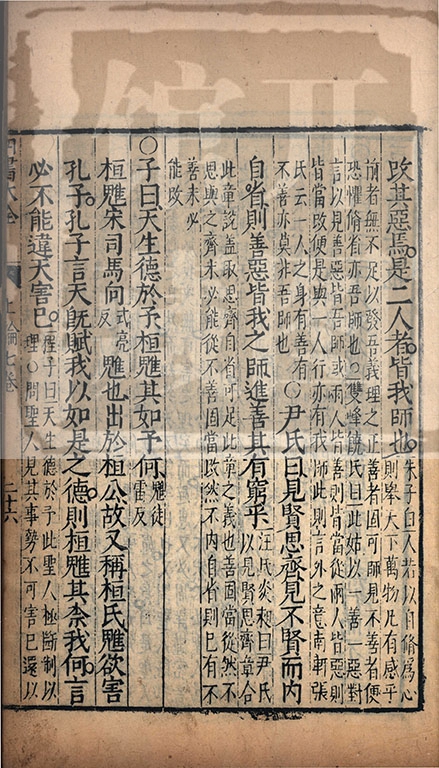 改其惡焉是二人者皆我師也朱子曰人若以自脩爲心
則舉天下萬物凡有感乎
前者無不足以發吾義理之正善者固可師見不善者便
恐懼脩省亦吾師也○雙峰饒氏曰此姑以一善一惡對
言以見善惡皆吾師或兩人皆善則皆當從兩人皆惡則
皆當改便是與一人行亦有我師此則言外之意南軒張
氏云一人之身有善有
不善亦莫非吾師也○尹氏曰見賢思齊見不賢而內
自省則善惡皆我之師進善其有窮乎汪氏炎昶曰尹氏
以見賢思齊章合
此章說蓋取思齊自省可足此章之義也善固當從然不
思與之齊未必能從不善固當改然不內自省則己有不
善未必
能改
○子曰天生德於予桓魋其如予何魋徒
雷反
桓魋宋司馬向式亮
反魋也出於桓公故又稱桓氏魋欲害
孔子孔子言天既賦我以如是之德則桓魋其柰我何言
必不能違天害己程子曰天生德於予此聖人極斷制以
理○問聖人見其事勢不可害己還以
四書大全
上論七卷
二十六